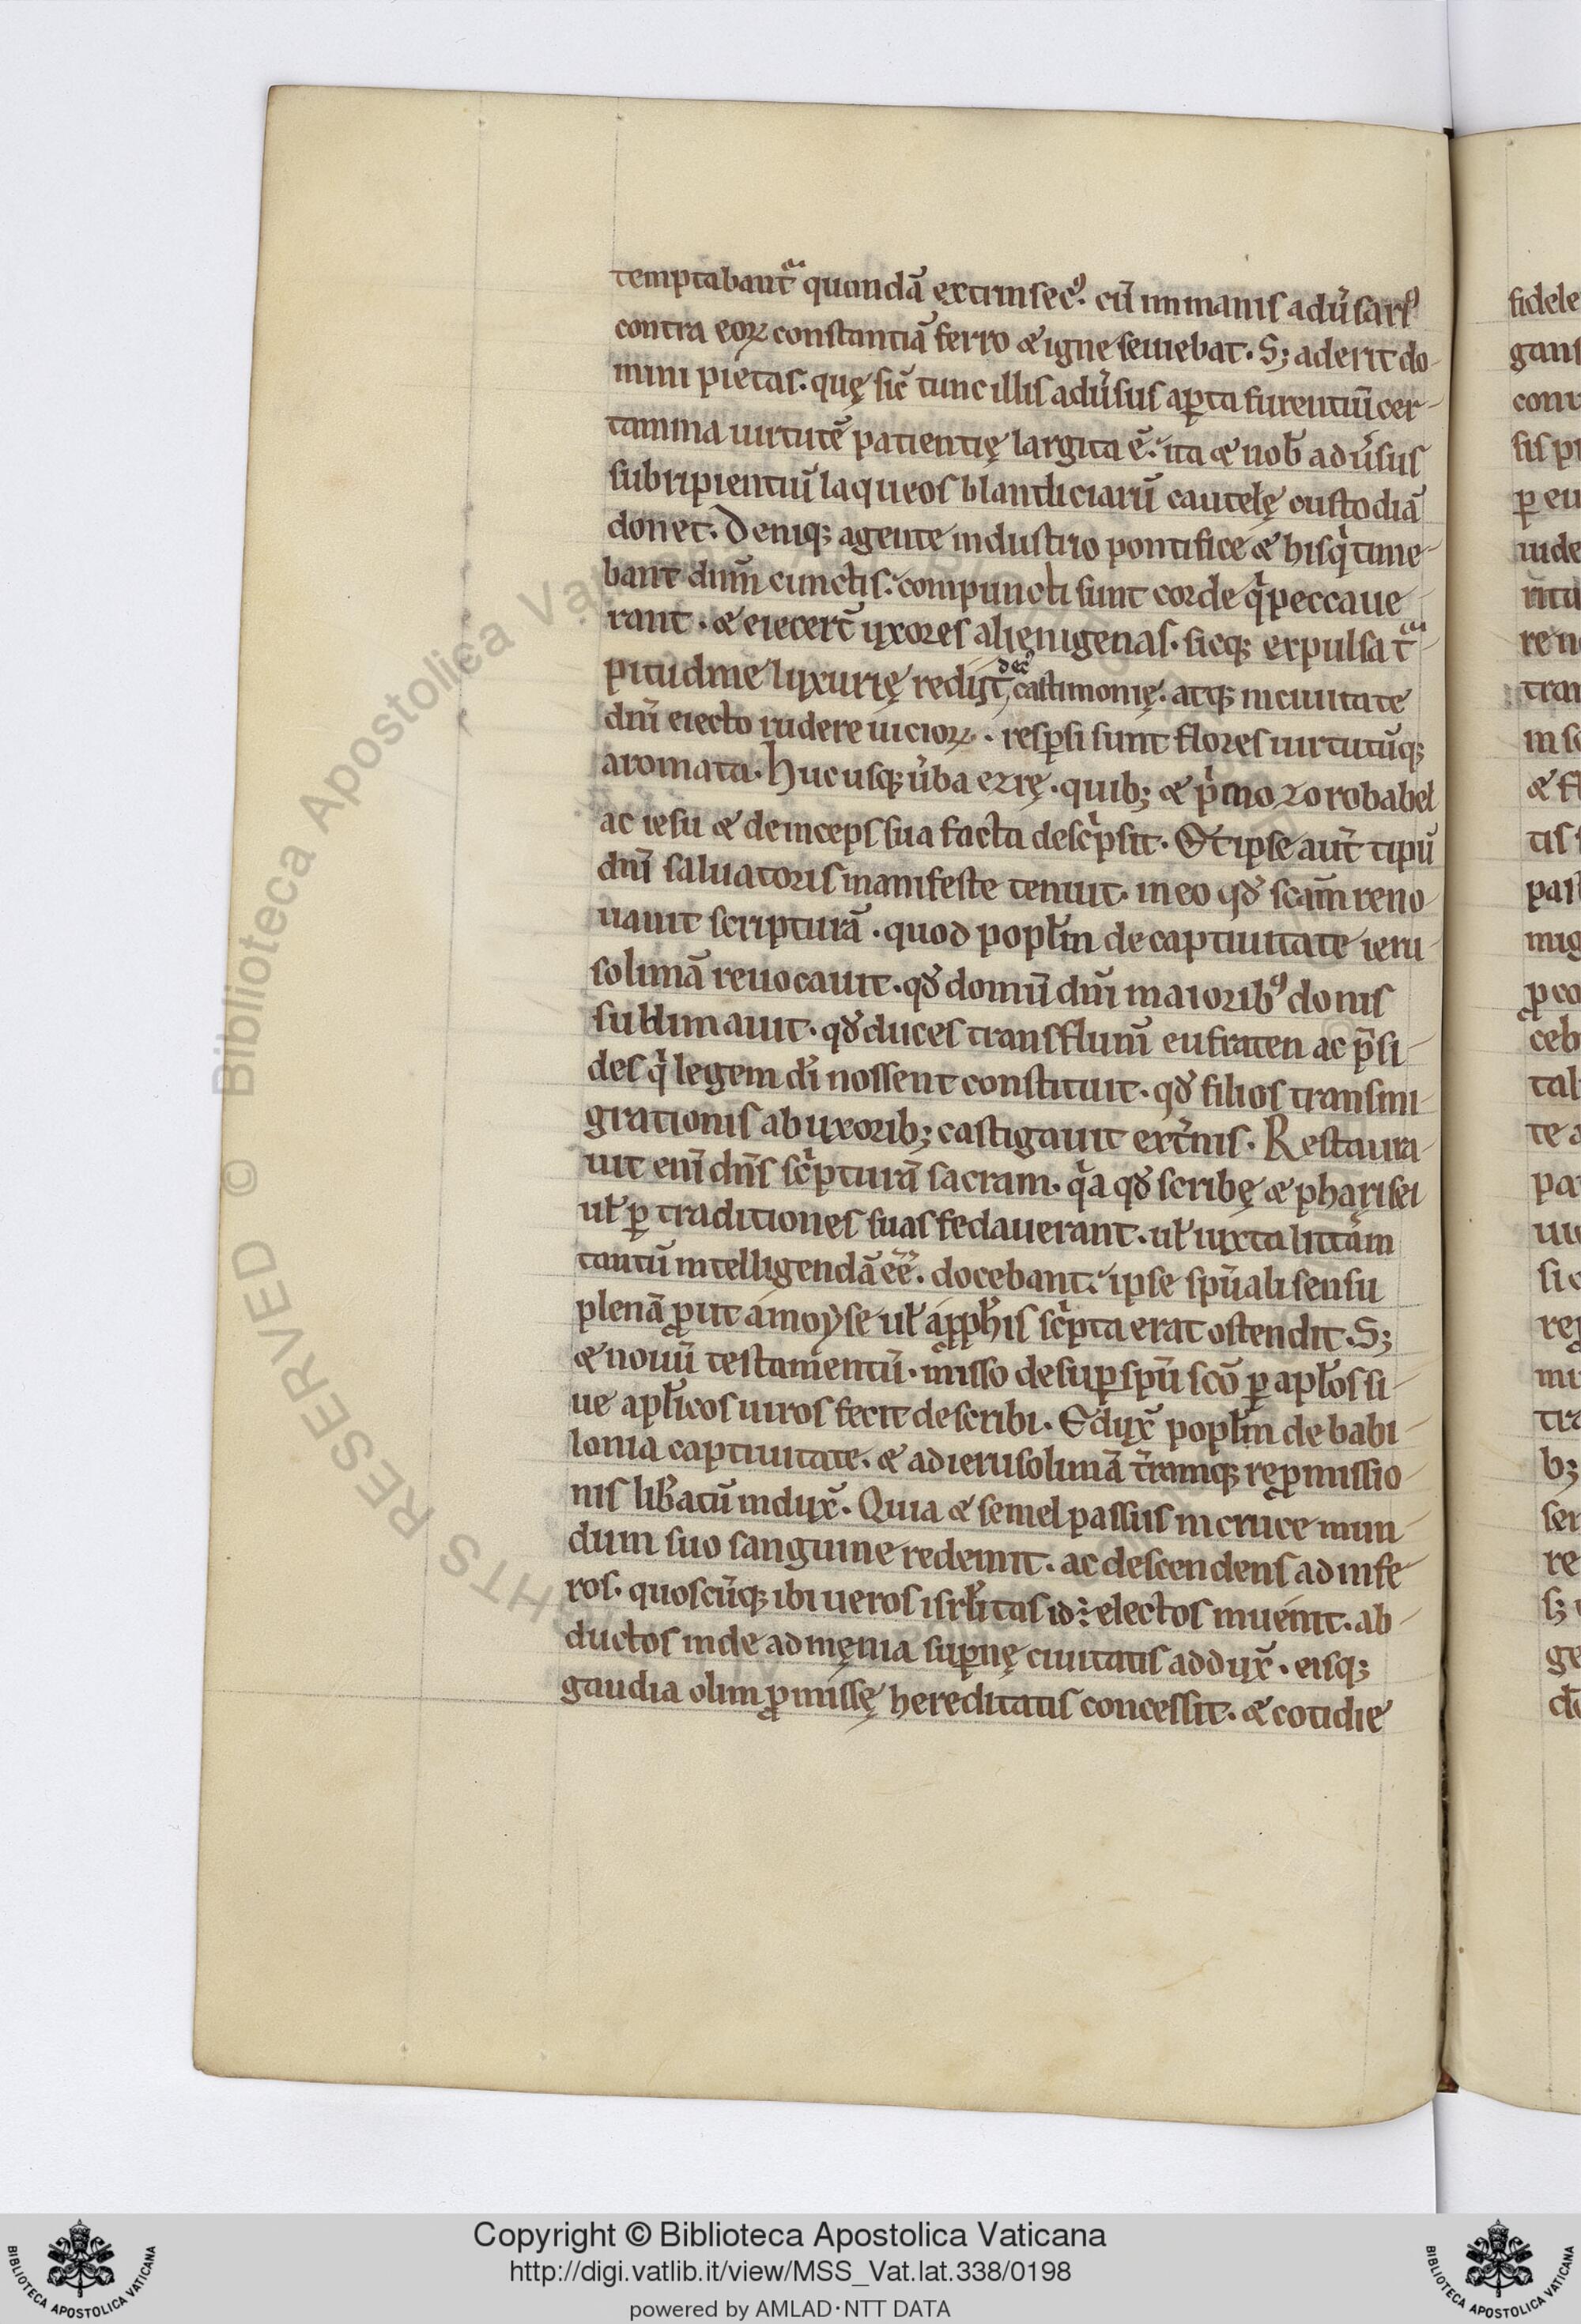 temptabantᷓ quondã extrinsecꝰ. cũ inmanis adũsariꝰ
contra eoꝝ constantiã ferro & igne seuiebat. S; aderit do-
mini pietas. quę sic̃ tunc illis adũsus aꝑta furentiũ cer-
tamina uirtutẽ patientię largita ẽ. ita & nob̃ adũsus
subripientiũ laqueos blandiciarũ cautelę custodiã
donet. Deniq; agente industrio pontifice & hisqͥ time-
bant dñm cunctis. compuncti sunt corde qͥ peccaue
rant. & eiecer̃t uxores alienigenas. sicq; expulsa tᷓ-
pitudine luxurię redijt decꝰ castimonię. atq; inciuitate
dñi eiecto rudere uicioꝝ. resꝑsi sunt flores uirtutũq;
aromata. Huc usq; ũba ezrę. quib; & pͥmo zorobabel
ac iesu & deinceps sua facta descͥpsit. Et ipse aũt tipũ
dñi saluatoris manifeste tenuit. in eo qđ scãm reno
uauit scripturã. quod popl̃m de captiuitate ieru-
solimã reuocauit. qđ domũ dñi maioribꝰ donis
sublimauit. qđ duces trans flum̃ eufraten ac p̃si-
des qͥ legem dĩ nossent constituit. qđ filios transmi
grationis ab uxorib; castigauit ext̃nis. Restaura-
uit eni᷈ dñs scͥpturã sacram. qͥa qđ scribę & pharisei
ul̃ ꝑ traditiones suas fedauerant. ul̃ iuxta litt̃am
tantũ intelligendã eẽ. docebant. ipse spũali sensu
plenã ꝓut a moyse ul̃ a ꝓph̃is scͥpta erat ostendit. S;
& nouũ testamentũ. misso desuꝑ spũ scõ ꝑ apl̃os si-
ue apl̃icos uiros fecit describi. Edux̃ popl̃m de babi-
lonia captiuitate. & ad ierusolimã t̃ramq; reꝓmissio
nis lib̃atũ indux̃. Quia & semel passus in cruce mun-
dum suo sanguine redemit. ac descendens ad infe-
ros. quoscũq; ibi ueros isrl̃itas id ẽ electos inuenit. ab-
ductos inde ad męnia suꝑnę ciuitatis addux̃. eisq;
gaudia olim ꝓmissę hereditatis concessit. & cotidie
fidele
Copyright © Biblioteca Apostolica Vaticana
http://digi.vatlib.it/view/MSS_Vat.lat.338/0198
powered by AMLAD·NTT DATA
BIBLIOTECA APOSTOLICA VATICANA
BIBLIOTECA APOSTOLICA VATICANA